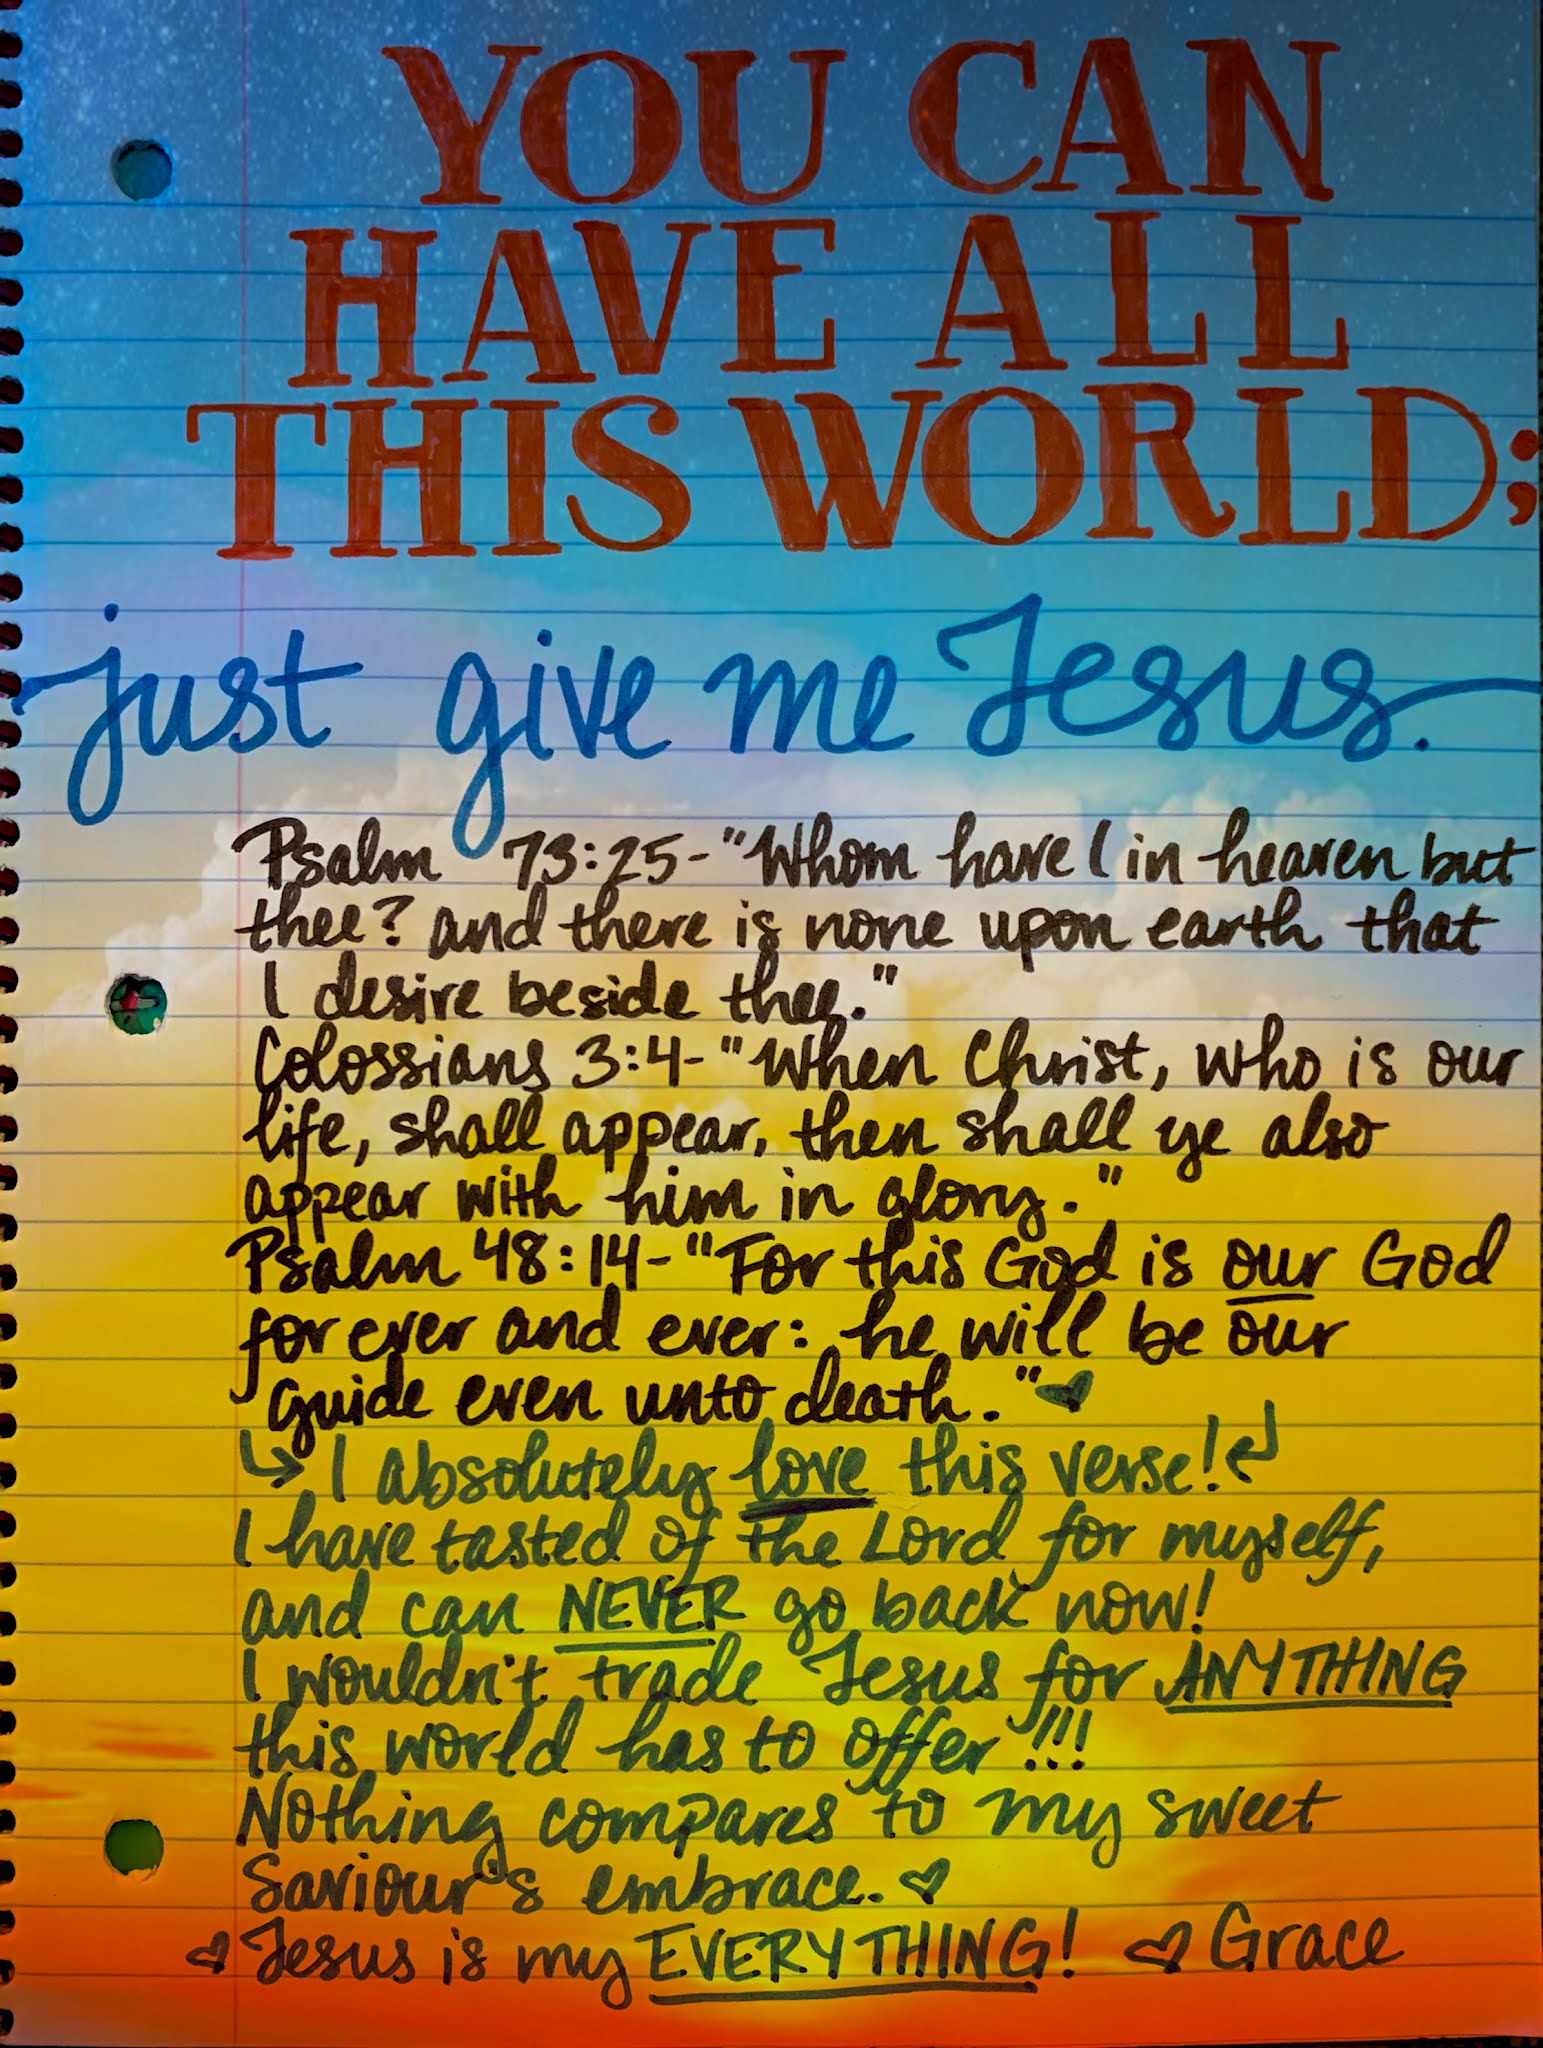 YOU CAN
HAVE ALL
THIS WORLD;
just give me Jesus.
Psalm 73:25-"Whom have I in heaven but
thee? and there is none upon earth that
I desire beside thee."
Colossians 3:4-"When Christ, who is our
life, shall appear, then shall ye also
appear with him in glory."
Psalm 48:14-"For this God is our God
for ever and ever: he will be our
guide even unto death."
I absolutely love this verse!
I have tasted of the Lord for myself,
and can NEVER go back now!
I wouldn't trade Jesus for ANYTHING
this world has to offer!!!
Nothing compares to my sweet
Saviour's embrace.
Jesus is my EVERYTHING! Grace